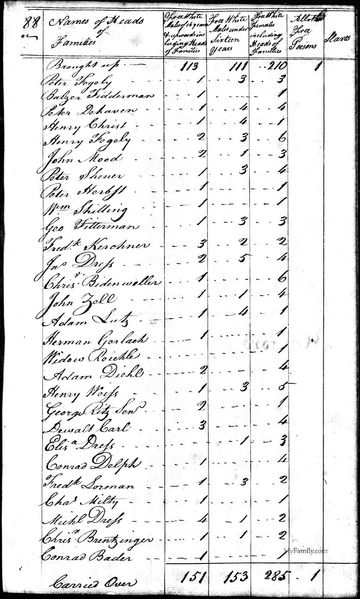 88 Names of Heads of Families | Free White Males of 16 years & upwards including Heads of Families | Free White Males under Sixteen Years | Free White Females including Heads of Families | All other Free Persons | Slaves
Brought up 113 111 210 1
Peter Fogely 1 3 3
Baltzer Fidderman 1 1
Peter Dehaven 1 4 4
Henry Christ 1 4 1
Henry Fogely 2 3 6
John Mood 2 1 3
Peter Shener 1 3 4
Peter Herbst 1 1
Wm Shilling 1 1
Geo Fitterman 1 3 3
Fredk Kerchner 3 2 2
Jno Dress 2 5 4
Christr Bidenwoller 1 6
John Zoll 1 1 4
Adam Lutz 1 4 1
Herman Gerlach 1 1
Widow Reichle
Adam Diehl 2 4
Henry Weiss 1 3 5
George Ritz Senr 2 1
Dewalt Carl 3 4
Elisa Dress 1 3
Conrad Dolph 1 4
Fredk Lorman 1 3 2
Chas Milty 1 1
Michl Dress 4 1 2
Chrisn Brentzinger 1 1 2
Conrad Bader 1 1
MyFamily.com
Carried Over 151 153 285 1